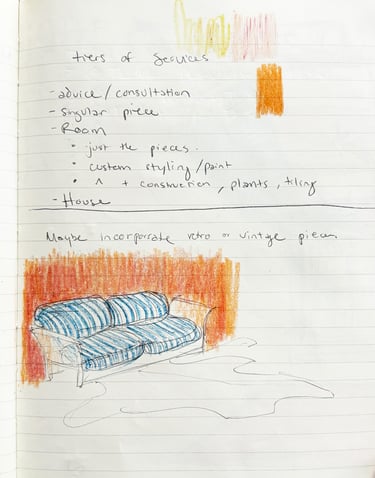 tiers of services
- advice / consultation
- singular piece
- Room
• just the pieces.
• custom styling / paint
• ^ + construction, plants, tiling
- House
Maybe incorporate retro or vintage pieces